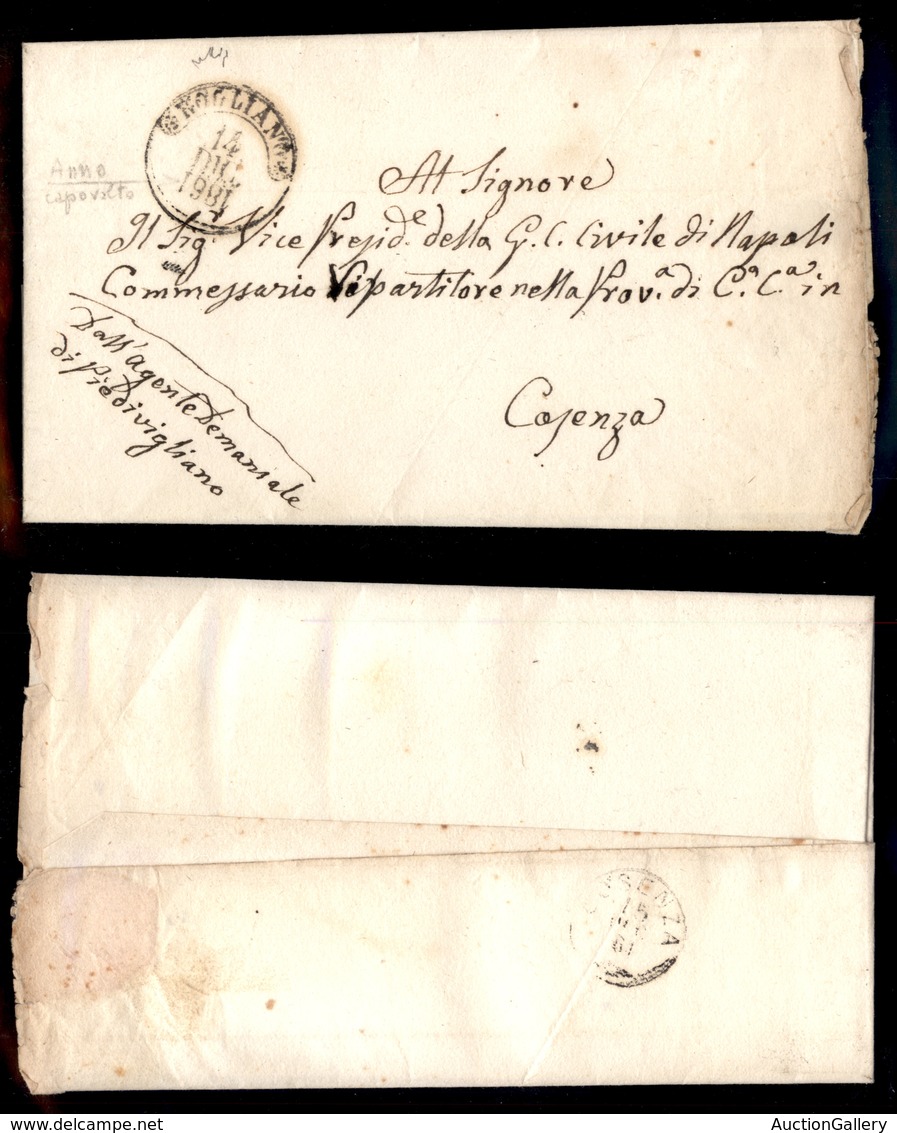 ROGLIANO
14
DIC
1981
Anno
capovolto
Al Signore
Il Sig. Vice Presid.e della G. C. Civile di Napoli
Commessario Ripartitore nella Prov.a di C.a C.a in
Cosenza
Dall'Agente Demaniale
di Piedivigliano
COSENZA
15
DIC
61
AuctionGallery